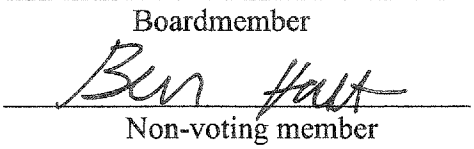 Boardmember
Ben
Non-voting member